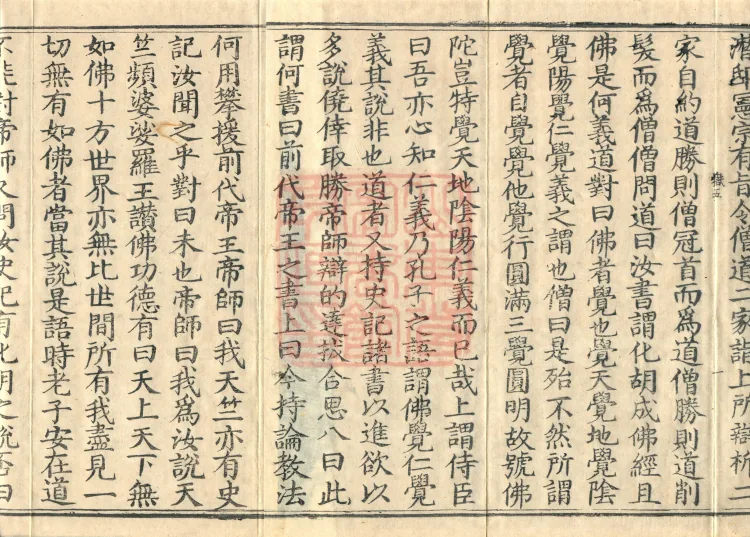 憲宗有旨令僧道二家詣上所辯析二
家自約道勝則僧冠首而為道僧勝則道削
髮而為僧僧問道曰汝書謂化胡成佛經且
佛是何義道對曰佛者覺也覺天覺地覺陰
覺陽覺仁覺義之謂也僧曰是殆不然所謂
覺者自覺覺他覺行圓滿三覺圓明故號佛
陀豈特覺天地陰陽仁義而已哉上謂侍臣
曰吾亦心知仁義乃孔子之語謂佛覺仁覺
義其說非也道者又持史記諸書以進欲以
多說僥倖取勝帝師辯的達拔合思八曰此
謂何書曰前代帝王之書上曰今持論教法
何用攀援前代帝王帝師曰我天竺亦有史
記汝聞之乎對曰未也帝師曰我為汝說天
竺頻婆娑羅王讚佛功德有曰天上天下無
如佛十方世界亦無比世間所有我盡見一
切無有如佛者當其說是語時老子安在道
不能對帝師又問汝史記有化胡之說否曰